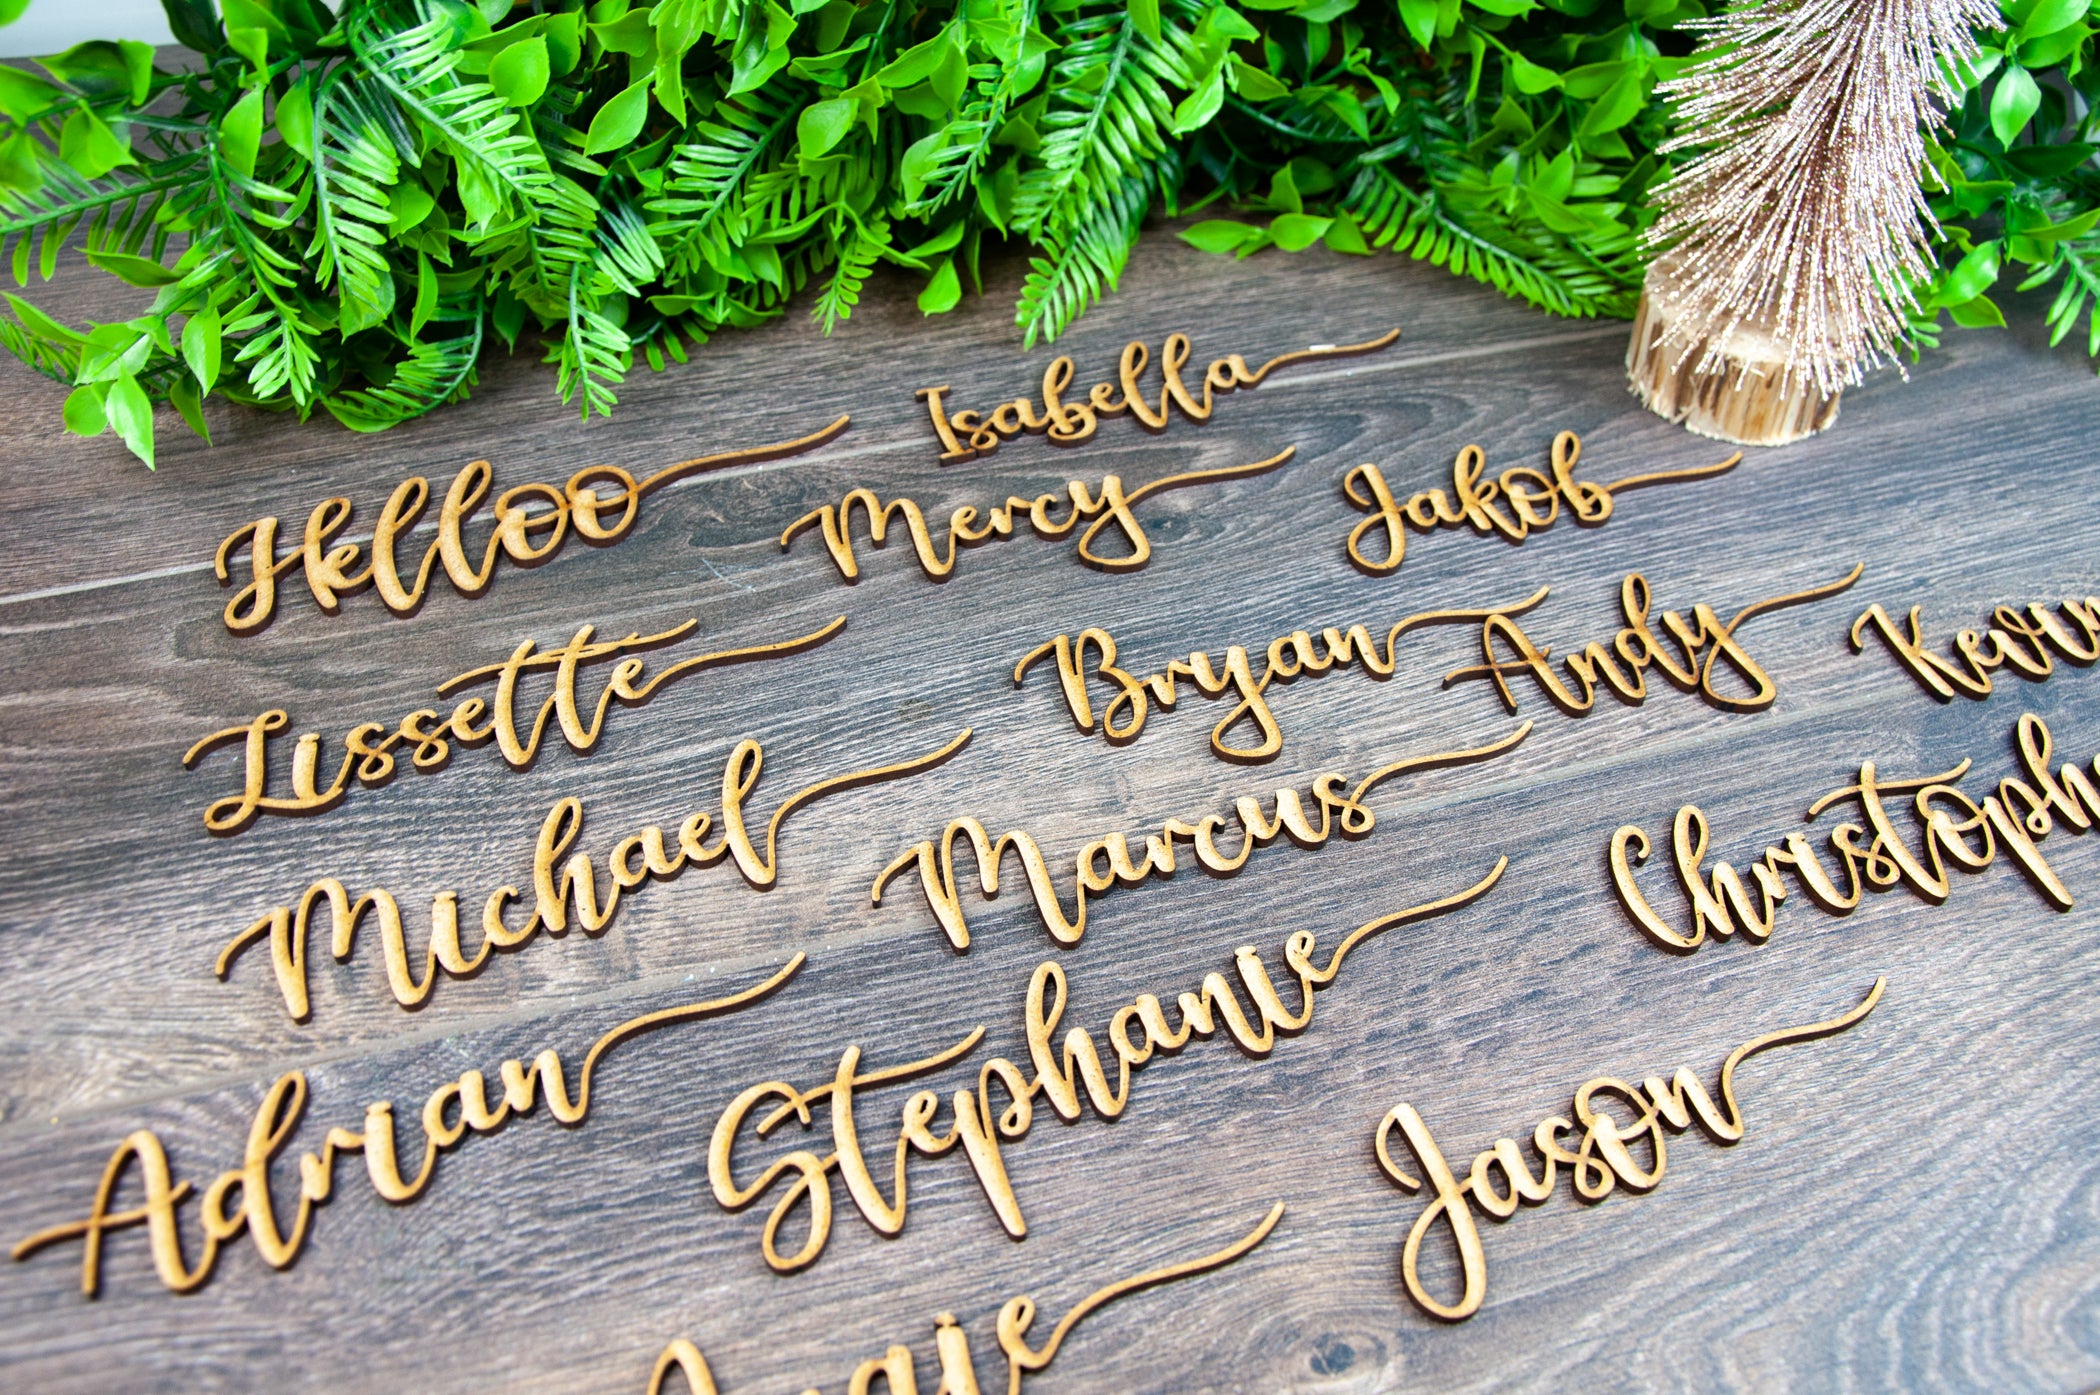 Isabella
Helloo Mercy Jakob
Lissette Bryan Andy Kevin
Michael Marcus Christoph
Adrian Stephanie Jason